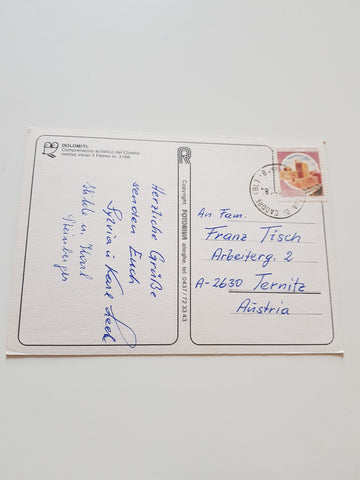 DOLOMITI:
Comprensorio sciistico del Civetta
motivi verso il Pelmo m. 3168
Herzliche Grüße
senden Euch
Sylvia u. Karl
u. Karl
Steinberger
R
Copyright FOTORIVA alleghe, tel. 0437/72 33 43
DI CADORE
An Fam.
Franz Tisch
Arbeiterg. 2
A-2630 Ternitz
Austria